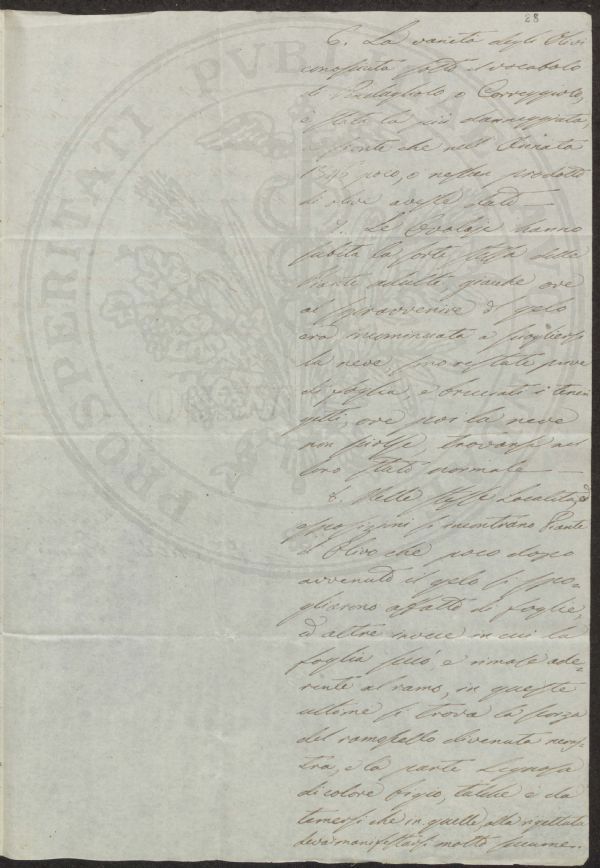 28
6. La varietà degli Olivi
conosciuta sotto il vocabolo
di o Correggiolo,
è stata la più danneggiata,
che nell' Annata
1849 poco, o nessun prodotto
di olive avesse dato —
7. Le Ovolaje hanno
subìta la sorte stessa delle
Piante adulte, giacchè ove
al sopravvenire del gelo
era incominciata a sciogliersi
la neve, sono restate prive
di foglia, e bruciati i teneri
getti, ove poi la neve
non sciolse, trovansi nel
loro stato normale —
8. Nelle stesse Località, ed
esposizioni si incontrano Piante
di Olivo che poco dopo
avvenuto il gelo si spo=
gliarono affatto di foglie,
ed altre invece in cui la
foglia seccò, e rimase ade=
rente al ramo, in queste
ultime si trova la scorza
del ramoscello divenuta neras=
tra, e la parte Legnosa
di colore bigio, talchè è da
temersi che in quelle alla rigettata
deva manifestarsi molto
PROSPERITATI PUBLICAE